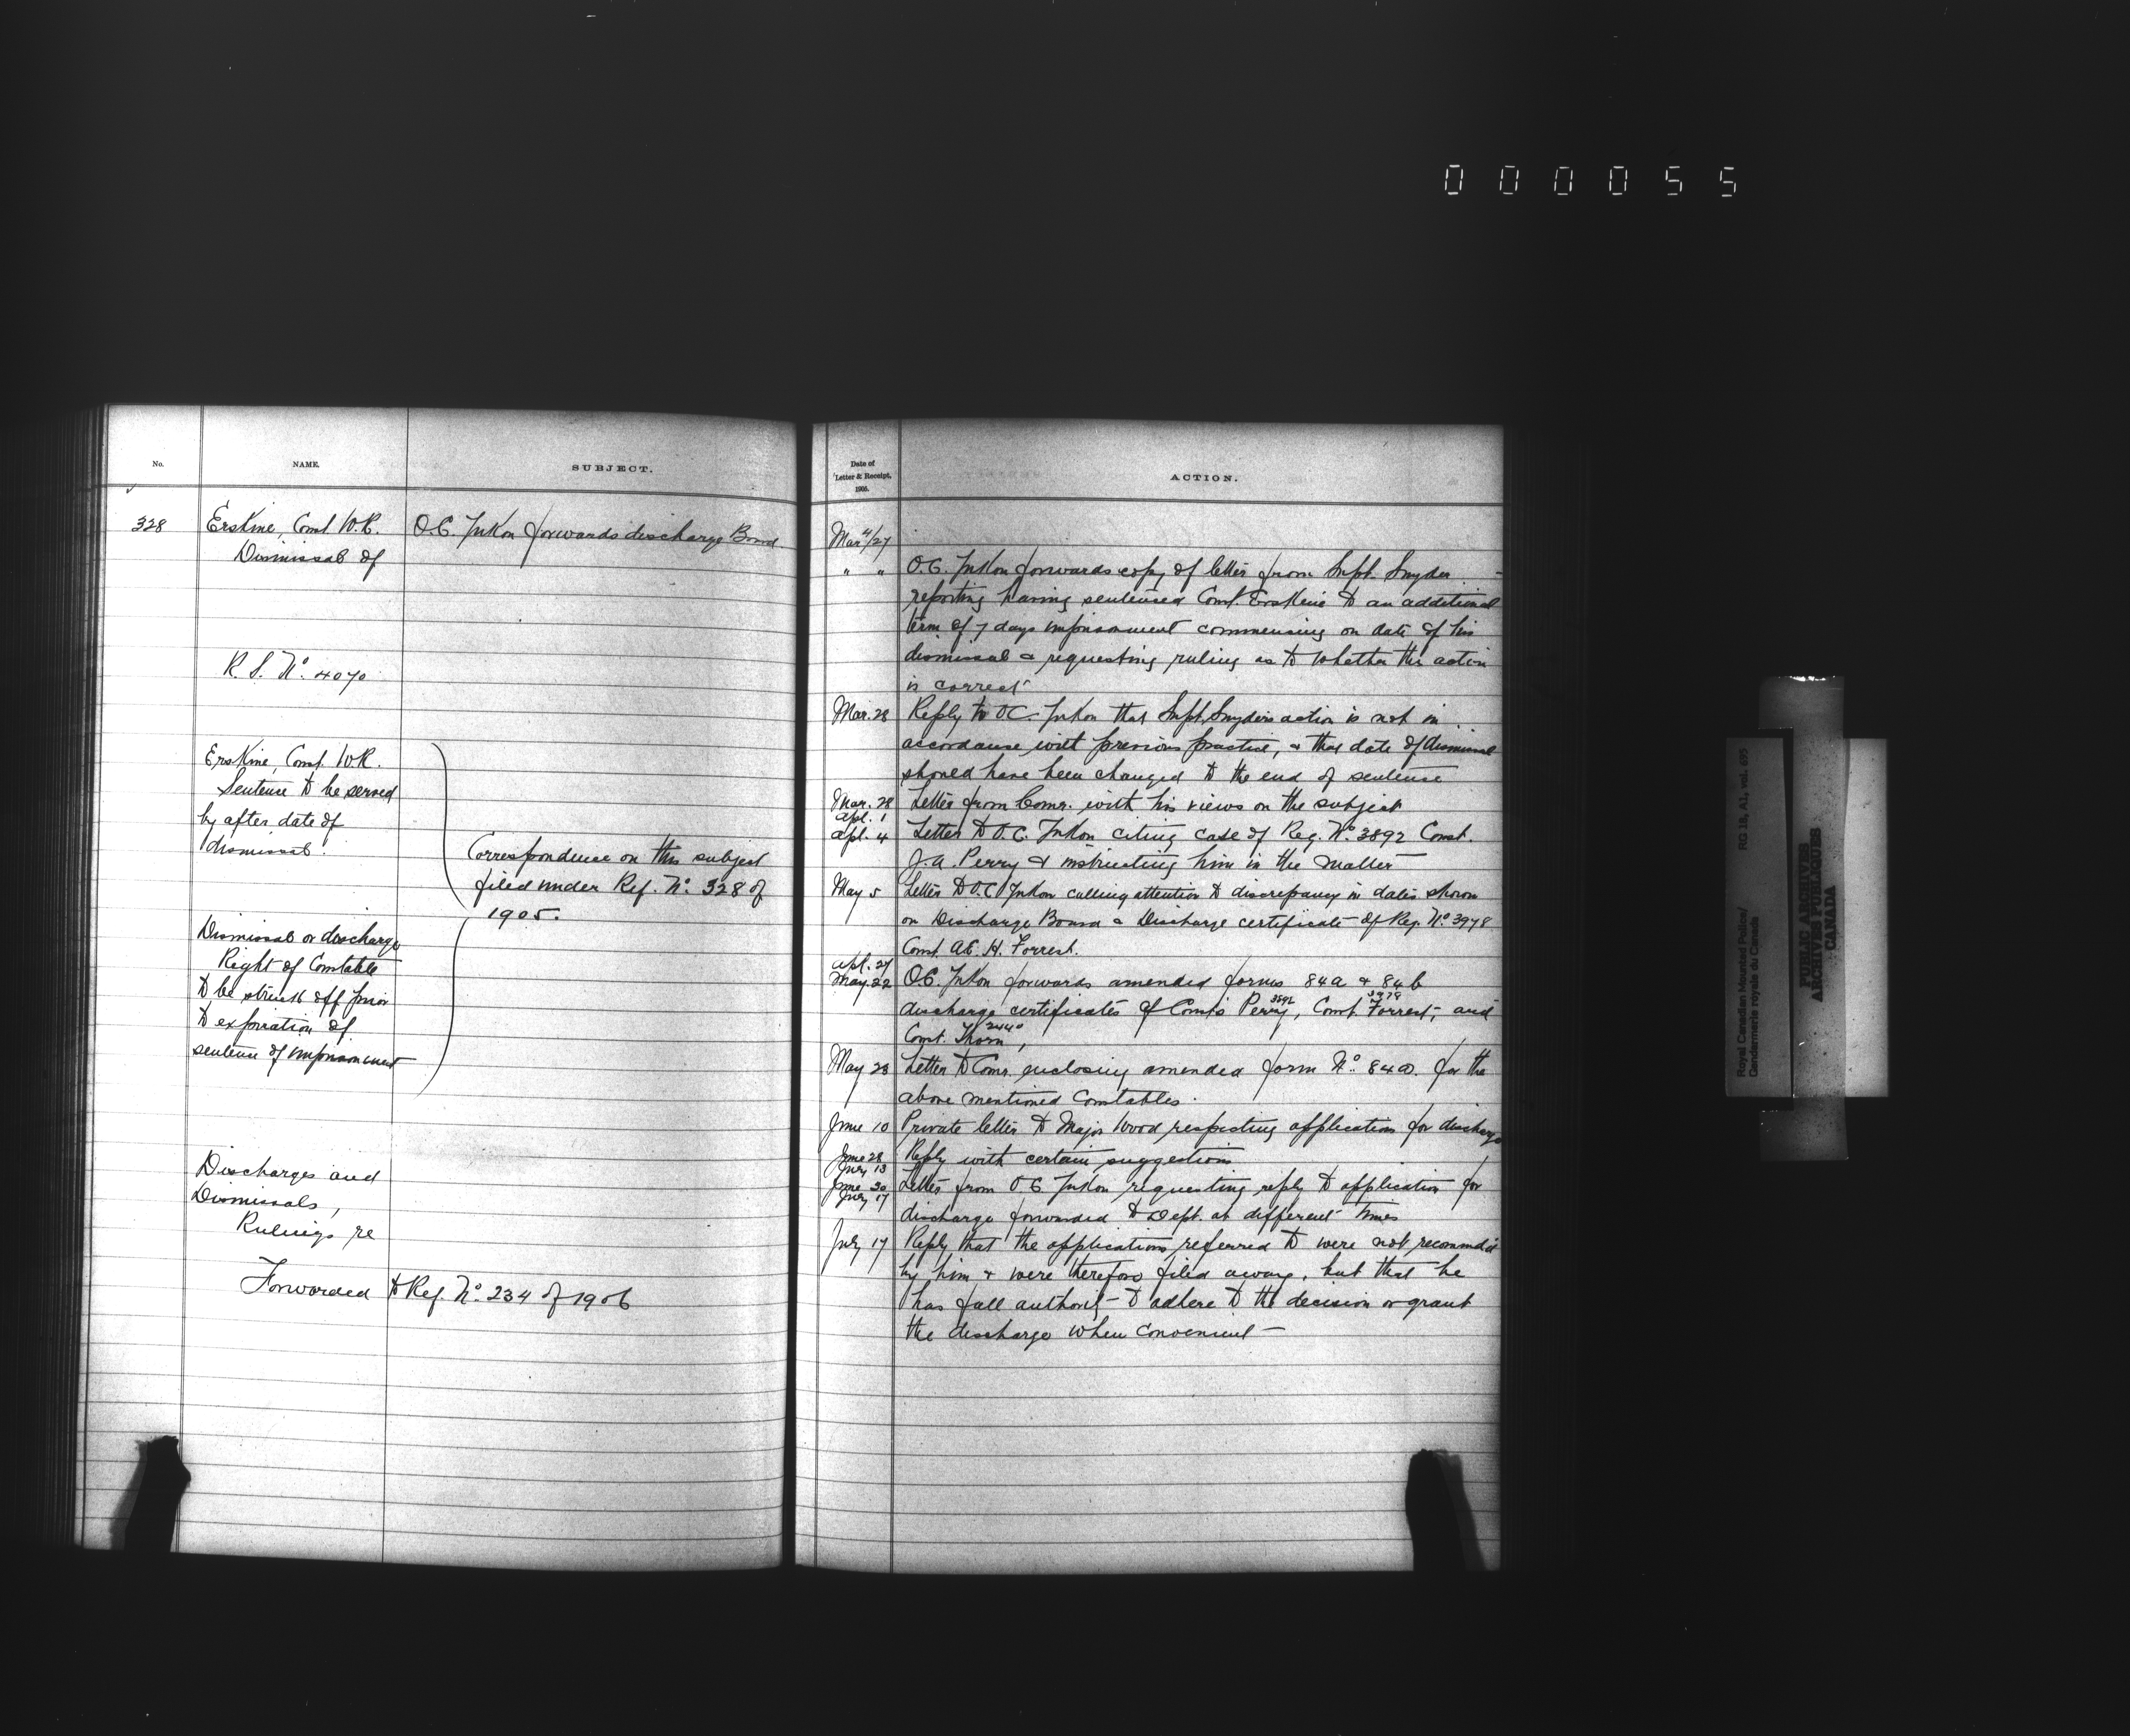 000055
No.
NAME.
SUBJECT.
328
Erskine, Const. W.R.
Dismissal of
O.C. Yukon forwards discharge Board
R. S. No. 4070
Erskine, Const. W.R.
Sentence to be served
by after date of
dismissal.
Correspondence on this subject
filed under Ref. No. 328 of
1905.
Dismissal or discharge
Right of Constable
to be struck off prior
to expiration of
sentence of imprisonment
Discharges and
Dismissals,
Rulings re
Forwarded to Ref. No. 234 of 1906
Date of
Letter & Receipt,
1905.
ACTION.
Mar 11/27
" " O.C. Yukon forwards copy of letter from Supt. Snyder
reporting having sentenced Const. Erskine to an additional
term of 7 days imprisonment commencing on date of his
dismissal & requesting ruling as to whether this action
is correct
Mar. 28 Reply to OC Yukon that Supt. Snyders action is not in
accordance with previous practice, & that date of dismissal
should have been changed to the end of sentence
Mar. 28
Apl. 1 Letter from Comr. with his views on the subject
Apl. 4 Letter to O.C. Yukon citing case of Reg. No. 3892 Const.
J.A. Perry & instructing him in the matter
May 5 Letter to O.C. Yukon calling attention to discrepancy in dates shown
on Discharge Board & Discharge certificate of Reg. No. 3978
Const. A.E. H. Forrest.
Apl. 27
May. 22 OC. Yukon forwards amended forms 84a & 84b
discharge certificates of Consts Perry 3892, Const. Forrest 3978, and
Const. Thorn 2440,
May 23 Letter to Comr. enclosing amended form No. 84a. for the
above mentioned Constables.
June 10 Private letter to Major Wood respecting application for discharge
June 28
July 13 Reply with certain suggestions
June 30
July 17 Letter from O C Yukon requesting reply to application for
discharge forwarded to Dept. at different times
July 17 Reply that the applications referred to were not recommd'd
by him & were therefore filed away, but that he
has full authority to adhere to the decision or grant
the discharge when convenient
Royal Canadian Mounted Police/
Gendarmerie royale du Canada
RG 18, A1, vol. 695
PUBLIC ARCHIVES
ARCHIVES PUBLIQUES
CANADA